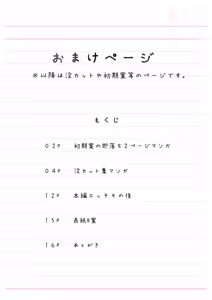 おまけページ
※以降は没カットや初期案等のページです。
もくじ
02P 初期案の部落ち2ページマンガ
04P 没カット集マンガ
12P 本編エッチその後
15P 表紙B案
16P あとがき